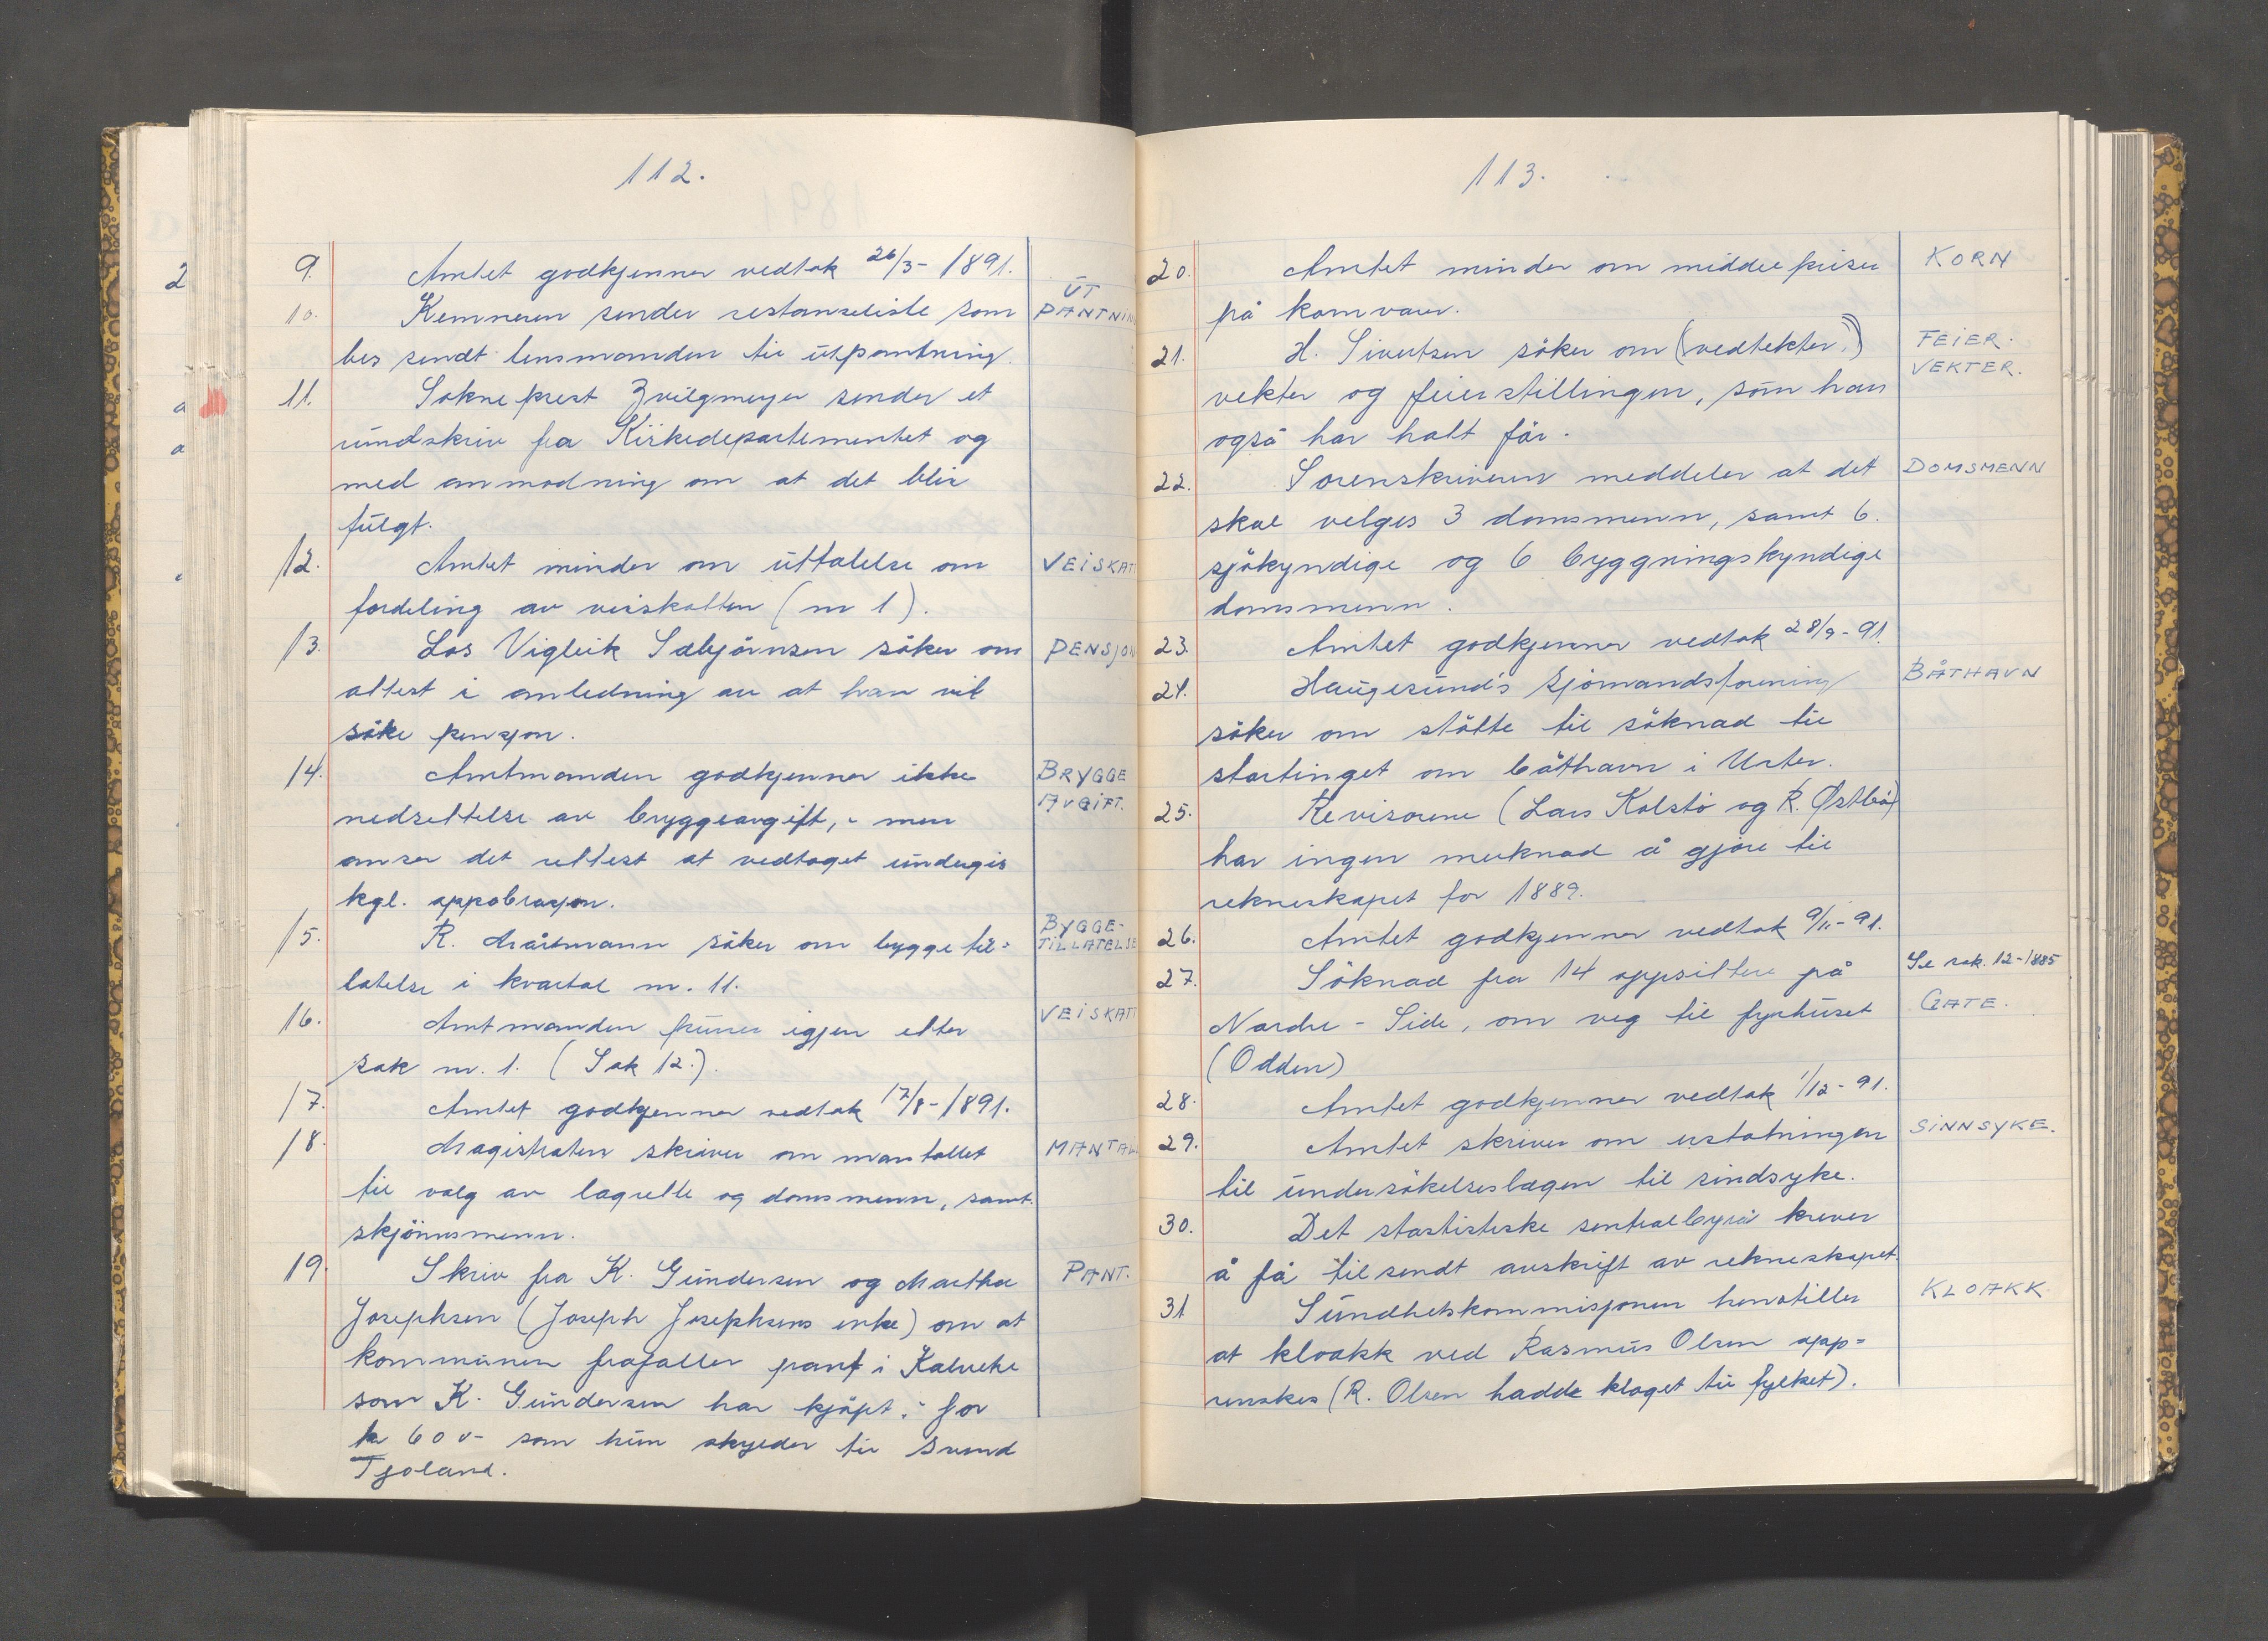 112.
9. Amtet godkjenner vedtak 26/3-1891.
10. Kemneren sender restanseliste som
ÜT
PANTNIN
bes sendt lensmanden til ütpantning.
11. Sokneprest Zvilgmeyer sender et
ründskriv fra Kirkedepartementet og
med anmodning om at det blir
fülgt.
12. Amtet minder om üttalelse om
VEISKATT
fordeling av veiskatten (nr 1).
13. Los Vigleik Sæbjörnsen söker om
PENSJON
attest i anledning av at han vil
söke pensjon.
14. Amtmanden godkjenner ikke
BRYGGE
AVGIFT.
nedsettelse av bryggeavgift, - men
anser det rettest at vedtaget ündergis
kgl. appobrasjon.
15. R. Mårtmann söker om byggetil=
BYGGE-
TILLATELSE
latelse i kvartal nr. 11.
16. Amtmanden pürrer igjen etter
VEISKATT
sak nr. 1. (Sak 12.).
17. Amtet godkjenner vedtak 17/8-1891.
18. Magistraten skriver om mantallet
MANTALL
til valg av lagrette og domsmenn, samt.
skjönnsmenn.
19. Skriv fra K. Gündersen og Martha
PANT.
Josephsen (Joseph Josephsens enke) om at
kommünen frafaller pant i Kalveke
som K. Gündersen har kjöpt, - for
kr 600- som hün skylder til Svend
Tjoland.
113.
20. Amtet minder om middelpriser
KORN
på kornvarer.
21. H. Sivertsen söker om (vedtekter.)
FEIER.
VEKTER.
vekter og feierstillingen, som han
også har hatt för.
22. Sorenskriveren meddeler at det
DOMSMENN
skal velges 3 domsmenn, samt 6.
sjökyndige og 6 byggningskyndige
domsmenn.
23. Amtet godkjenner vedtak 28/9-91.
24. Haügesünd's Sjömandsforening
BÅTHAVN
söker om stötte til söknad til
stortinget om båthavn i Urter.
25. Revisorene (Lars Kolstö og R. Østbö)
har ingen merknad å gjöre til
rekneskapet for 1889.
26. Amtet godkjenner vedtak 9/11-91.
27. Söknad fra 14 oppsittere på
Se sak. 12-1885
GATE.
Nordre - Side, om veg til fyrhüset
(Odden)
28. Amtet godkjenner vedtak 1/12-91.
29. Amtet skriver om erstatningen
SINNSYKE.
til ündersökelseslægen til sindsyke.
30. Det stastisteske sentralbyrå krever
å få tilsendt avskrift av rekneskapet.
31 Sündhetskommisjonen henstiller
KLOAKK
at kloakk ved Rasmüs Olsen opp=
renskes (R. Olsen hadde klaget til fylket).